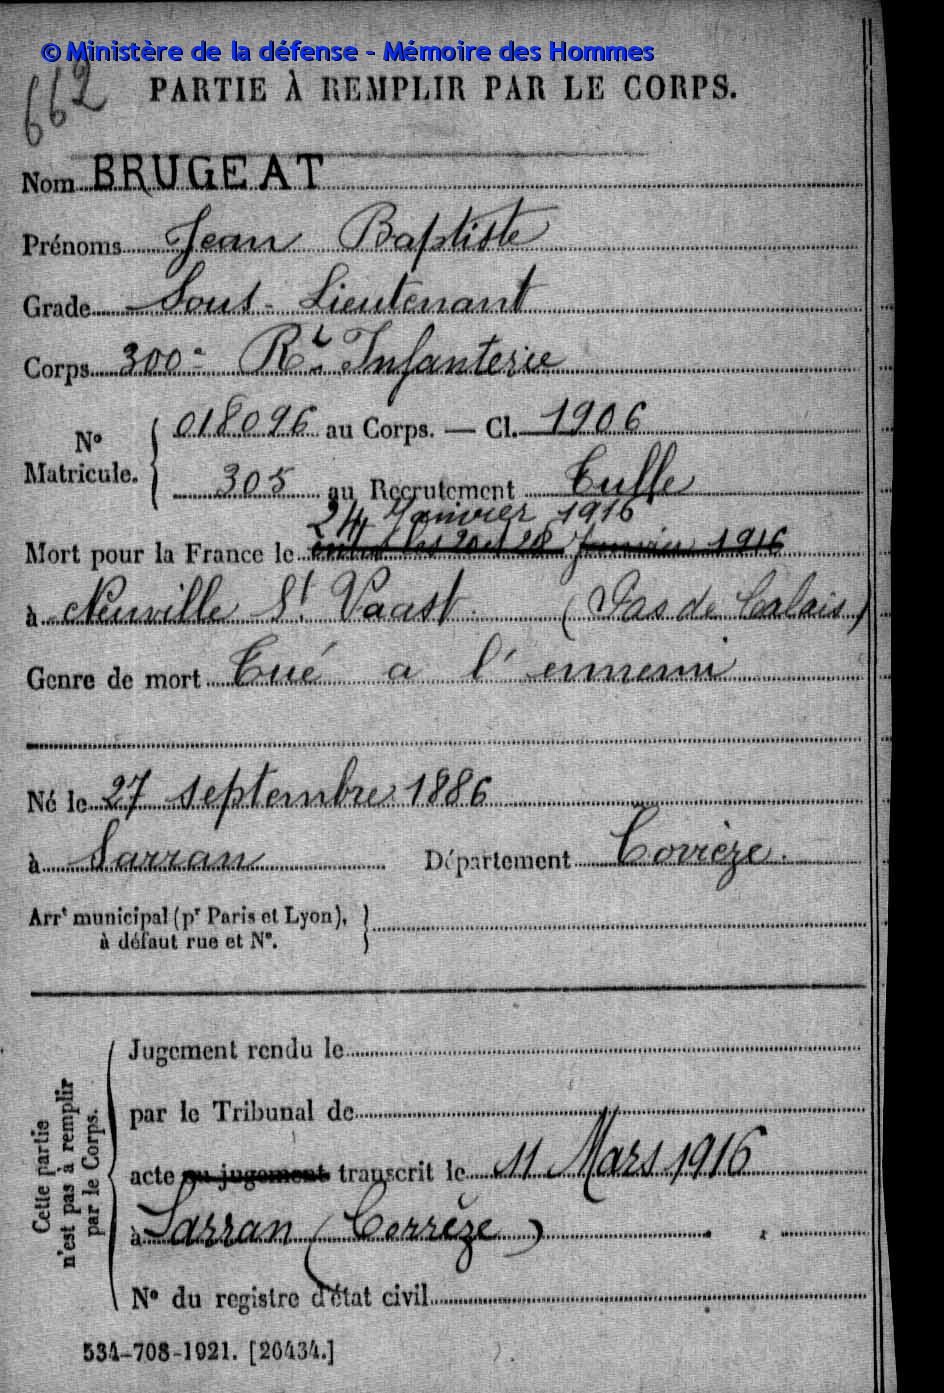 © Ministère de la défense - Mémoire des Hommes
662
PARTIE À REMPLIR PAR LE CORPS.
Nom BRUGEAT
Prénoms Jean Baptiste
Grade Sous-Lieutenant
Corps 300e Rt. Infanterie
No Matricule. 018096 au Corps. — Cl. 1906
305 au Recrutement Tulle
24 Janvier 1916
Mort pour la France le entre les 20 et 28 Janvier 1916
à Neuville St. Vaast (Pas de Calais)
Genre de mort Tué a l'ennemi
Né le 27 septembre 1886
à Sarran Département Corrèze.
Arrt municipal (pr Paris et Lyon),
à défaut rue et No.
Cette partie n'est pas à remplir par le Corps.
Jugement rendu le
par le Tribunal de
acte ou jugement transcrit le 11 Mars 1916
à Sarran (Corrèze)
No du registre d'état civil
534-708-1921. [26434.]